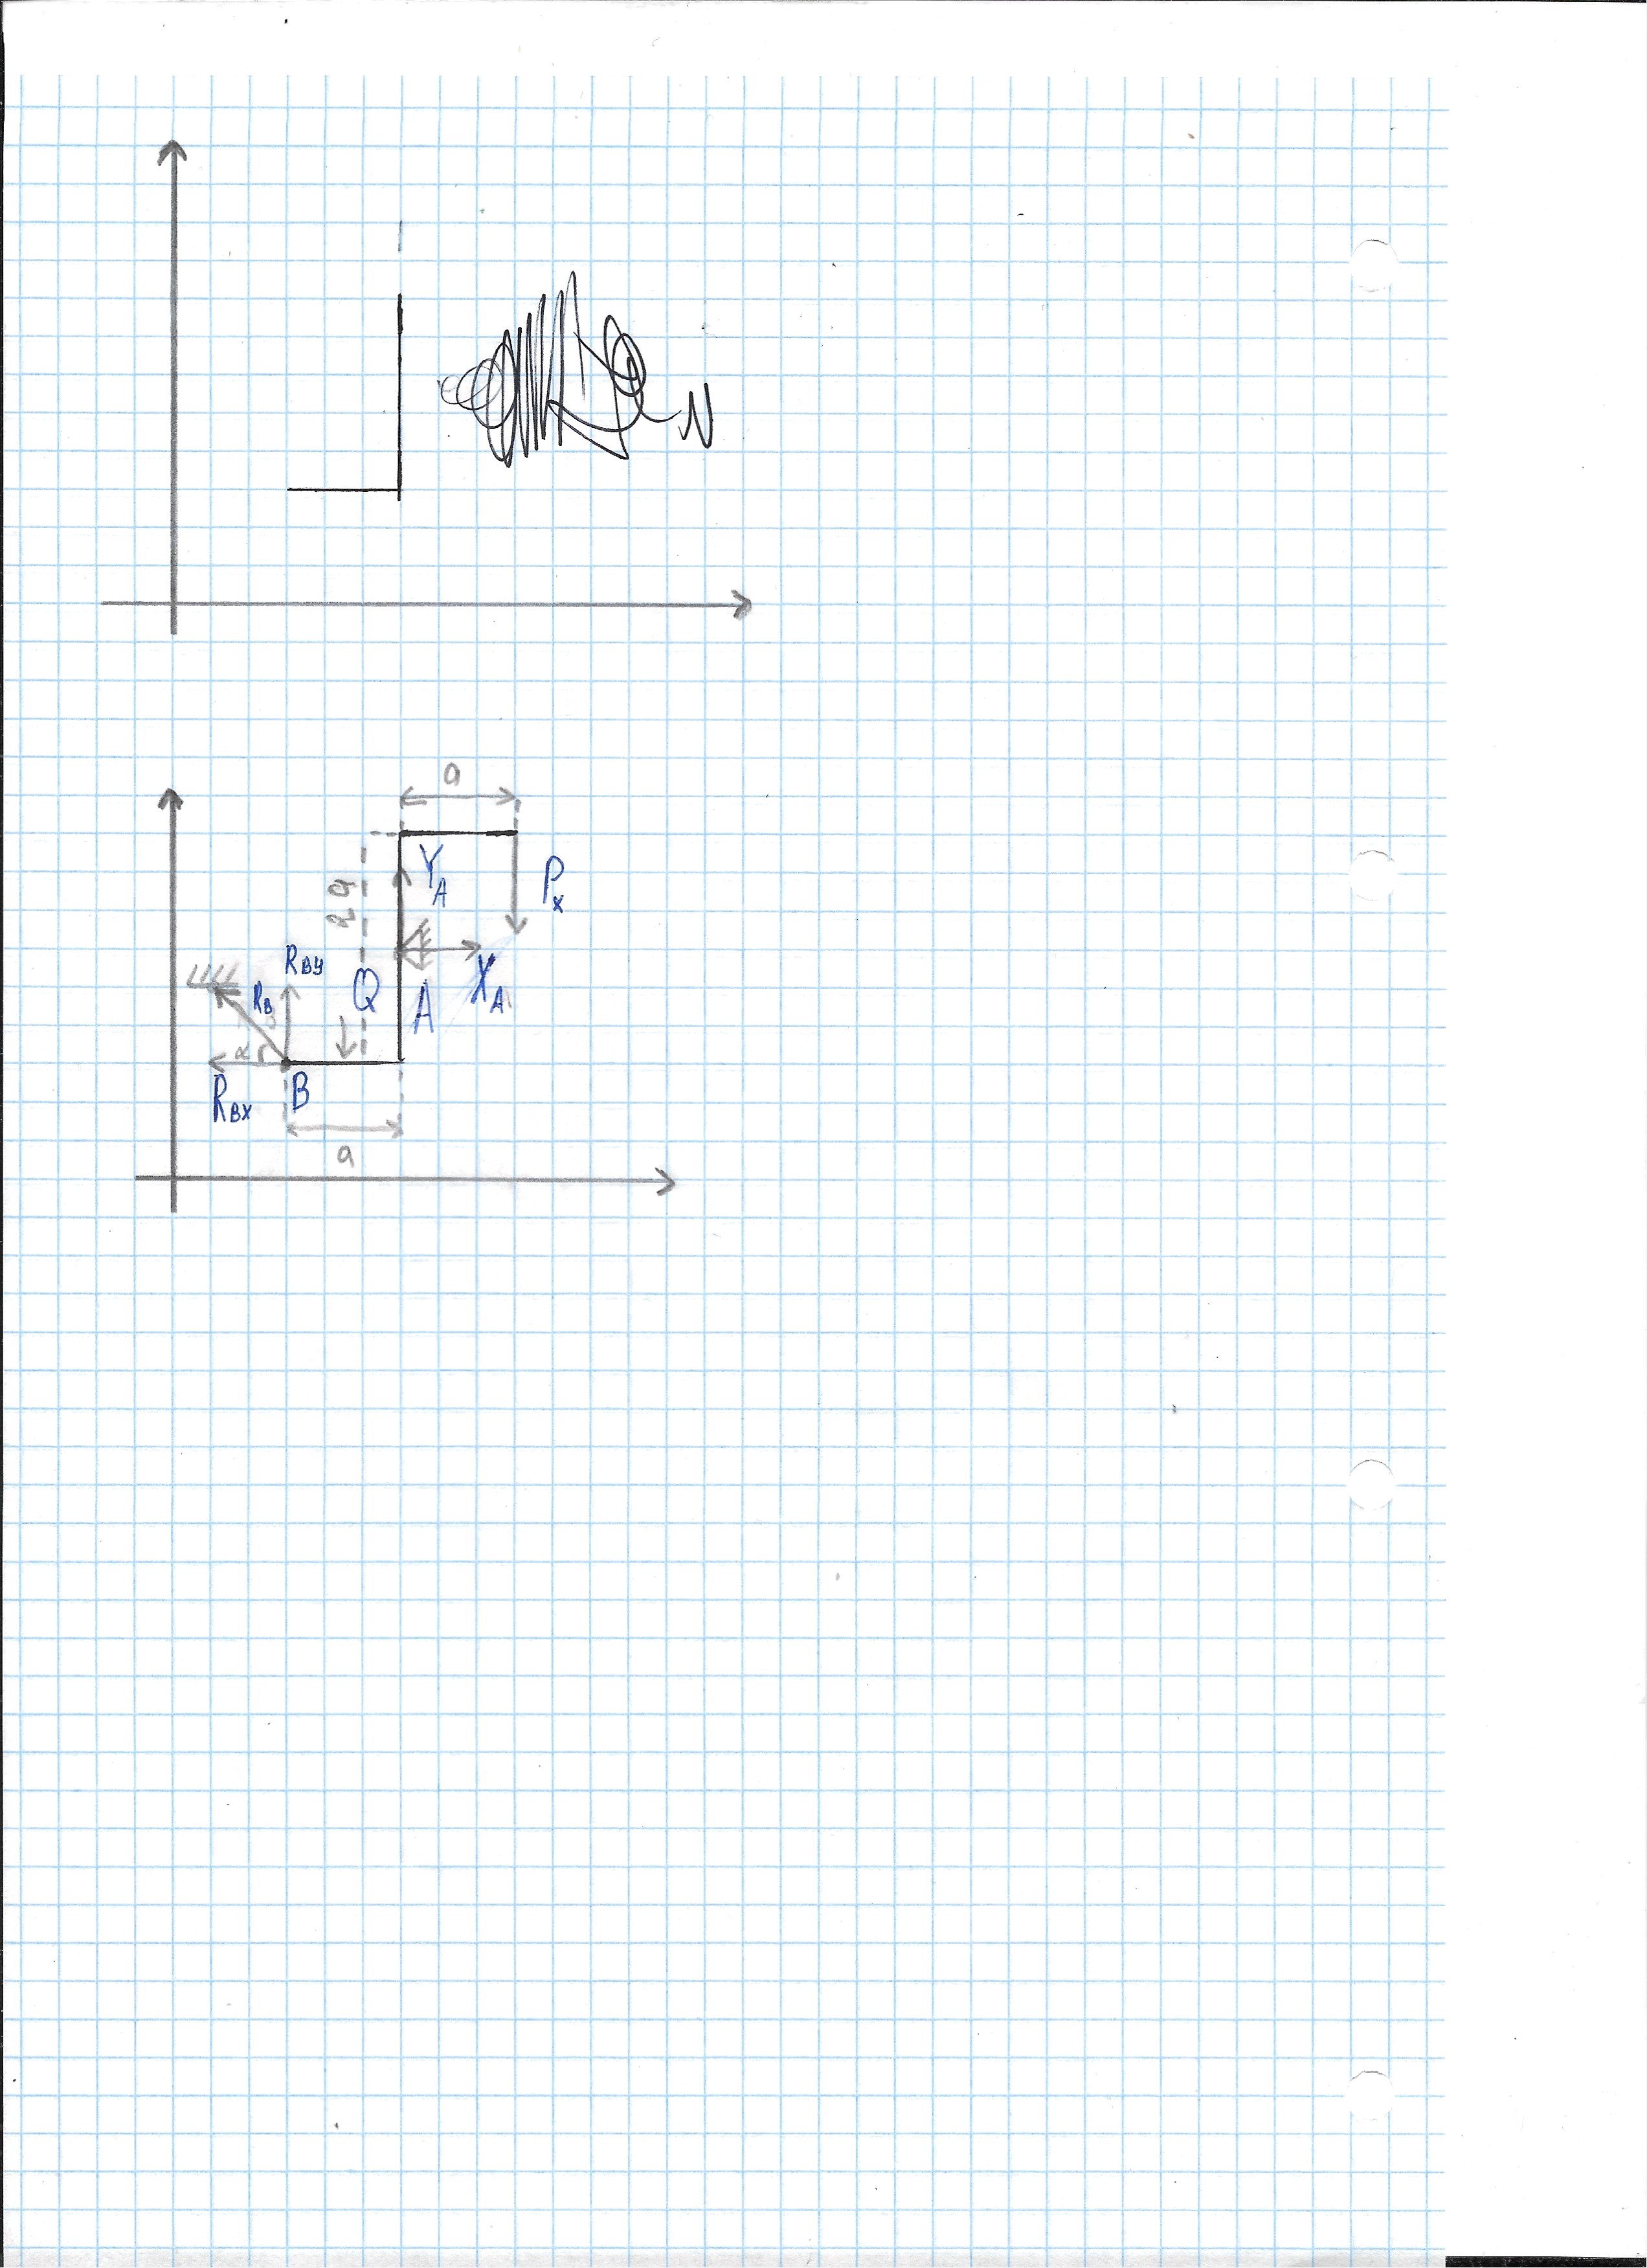 N
a
Y_A
P_x
2a
R_BY
R_B
Q
X_A
A
α
R_BX
B
a